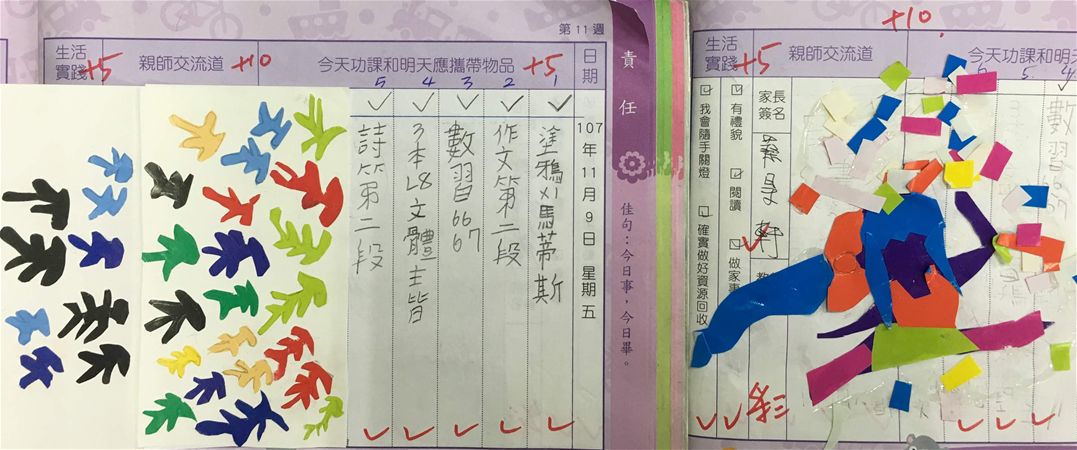 第11週
生活實踐
+5
親師交流道
+10
今天功課和明天應攜帶物品
+5
日期
107年11月9日 星期五
1
塗鴉以馬蒂斯
2
作文第二段
3
數習66 67
4
3本L8文體主皆
5
詩箋第二段
責任
佳句：今日事，今日畢。
生活實踐
+5
親師交流道
+10
今天功課和明天
5
4
數習66 67
家長簽名
有禮貌
閱讀
做家事
我會隨手關燈
確實做好資源回收